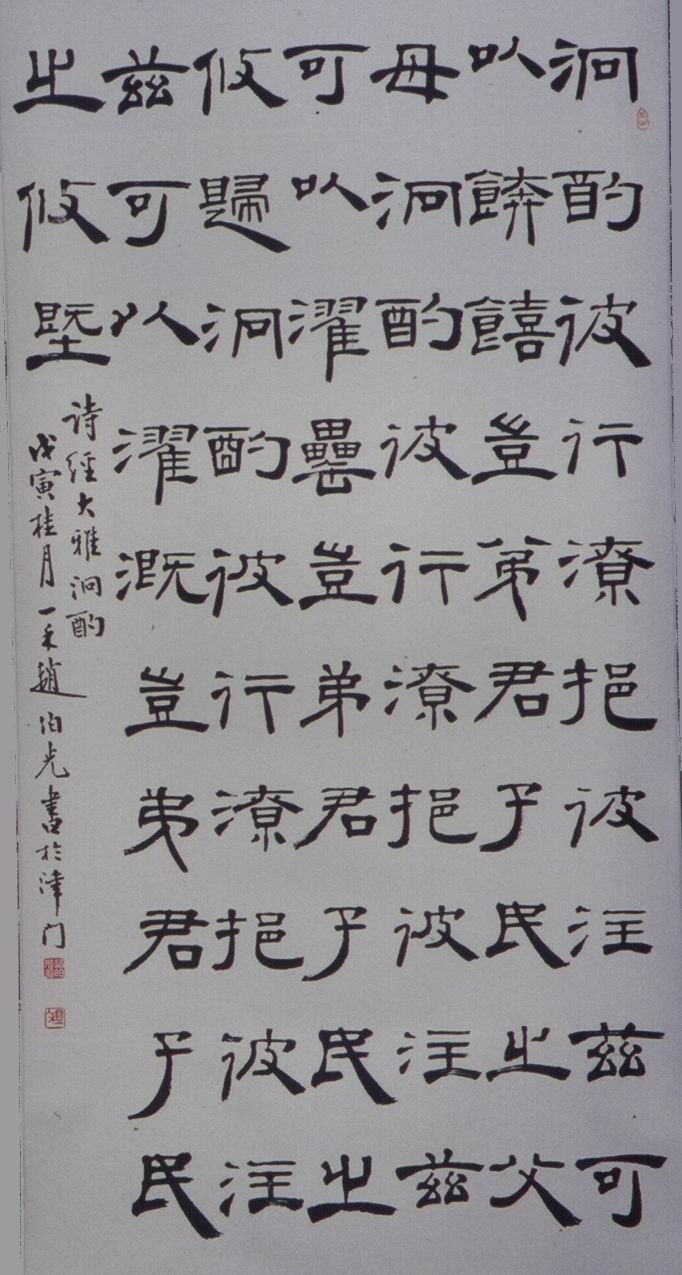 泂酌彼行潦挹彼注茲可
以餴饎豈弟君子民之父
母泂酌彼行潦挹彼注茲
可以濯罍豈弟君子民之
攸歸泂酌彼行潦挹彼注
茲可以濯溉豈弟君子民
之攸塈
诗經大雅泂酌
戊寅桂月一禾趙伯光書於津门